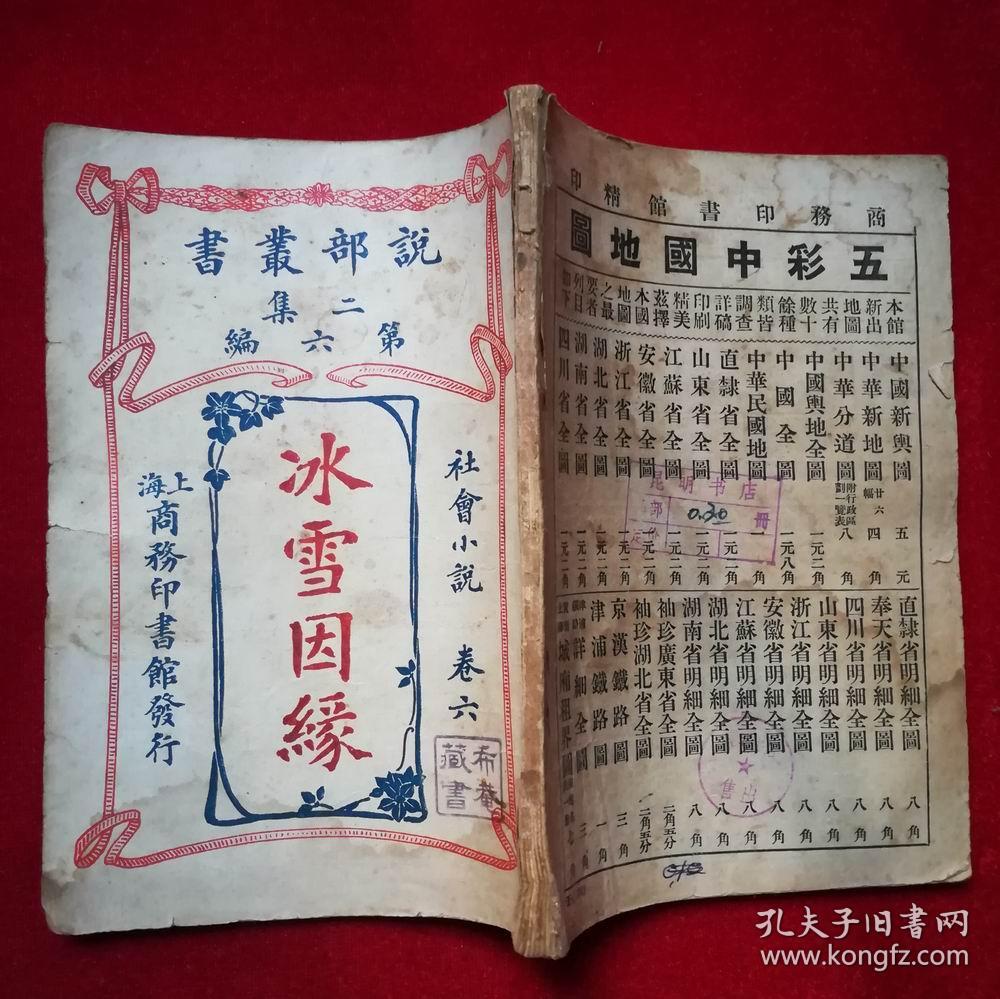 說部叢書
二集
第六編
社會小說 卷六
冰雪因緣
上海商務印書館發行
希菴藏書
商務印書館精印
五彩中國地圖
本館新出地圖共有數十餘種類皆調查詳確印刷精美茲擇本國地圖之最要者列目如下
中國新輿圖 五元
中華新地圖 廿六幅 四角
中華分道圖 附行政區劃一覽表 八角
中國輿地全圖 一元二角
中國全圖 一元八角
中華民國地圖
直隸省全圖 一元二角
山東省全圖 一元二角
江蘇省全圖 一元二角
安徽省全圖 一元二角
浙江省全圖 一元二角
湖北省全圖 一元二角
湖南省全圖 一元二角
四川省全圖 一元二角
直隸省明細全圖 八角
奉天省明細全圖 八角
四川省明細全圖 八角
山東省明細全圖 八角
浙江省明細全圖 八角
安徽省明細全圖 八角
江蘇省明細全圖 八角
湖北省明細全圖 八角
湖南省明細全圖 八角
袖珍廣東省全圖 二角五分
袖珍湖北省全圖 二角五分
京漢鐵路圖 三角
津浦鐵路圖 一角
詳細全圖 三角
城廂租界圖
昆明书店
册
0.30
售出
孔夫子旧書网
www.kongfz.com